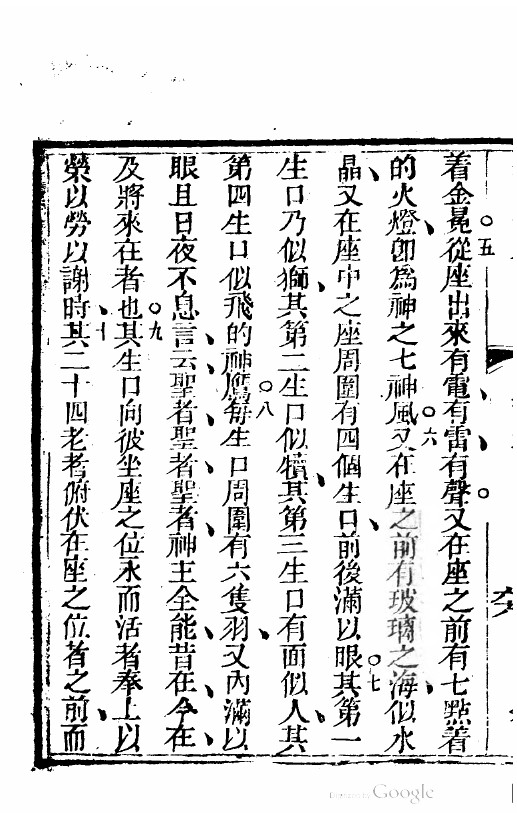 着金冕從座出來有電有雷有聲○五又在座之前有七點着
的火燈卽爲神之七神風○六又在座之前有玻璃之海似水
晶又在座中之座周圍有四個生口前後滿以眼○七其第一
生口乃似獅其第二生口似犢其第三生口有面似人其
第四生口似飛的神鷹○八每生口周圍有六隻羽又內滿以
眼且日夜不息言云聖者聖者聖者神主全能昔在今在
及將來在者也○九其生口向彼坐座之位永而活者奉上以
榮以勞以謝時○十其二十四老者俯伏在座之位者之前而
Google